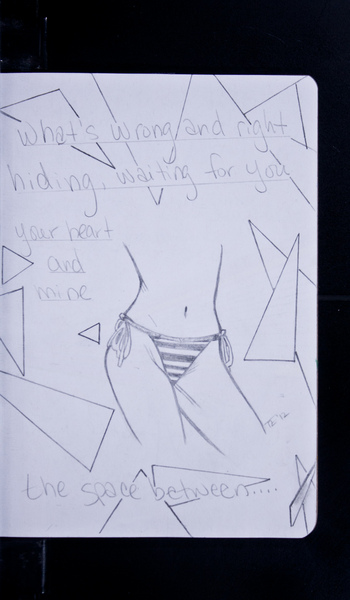 what's wrong and right
hiding, waiting for you
your heart
and
mine
the space between....